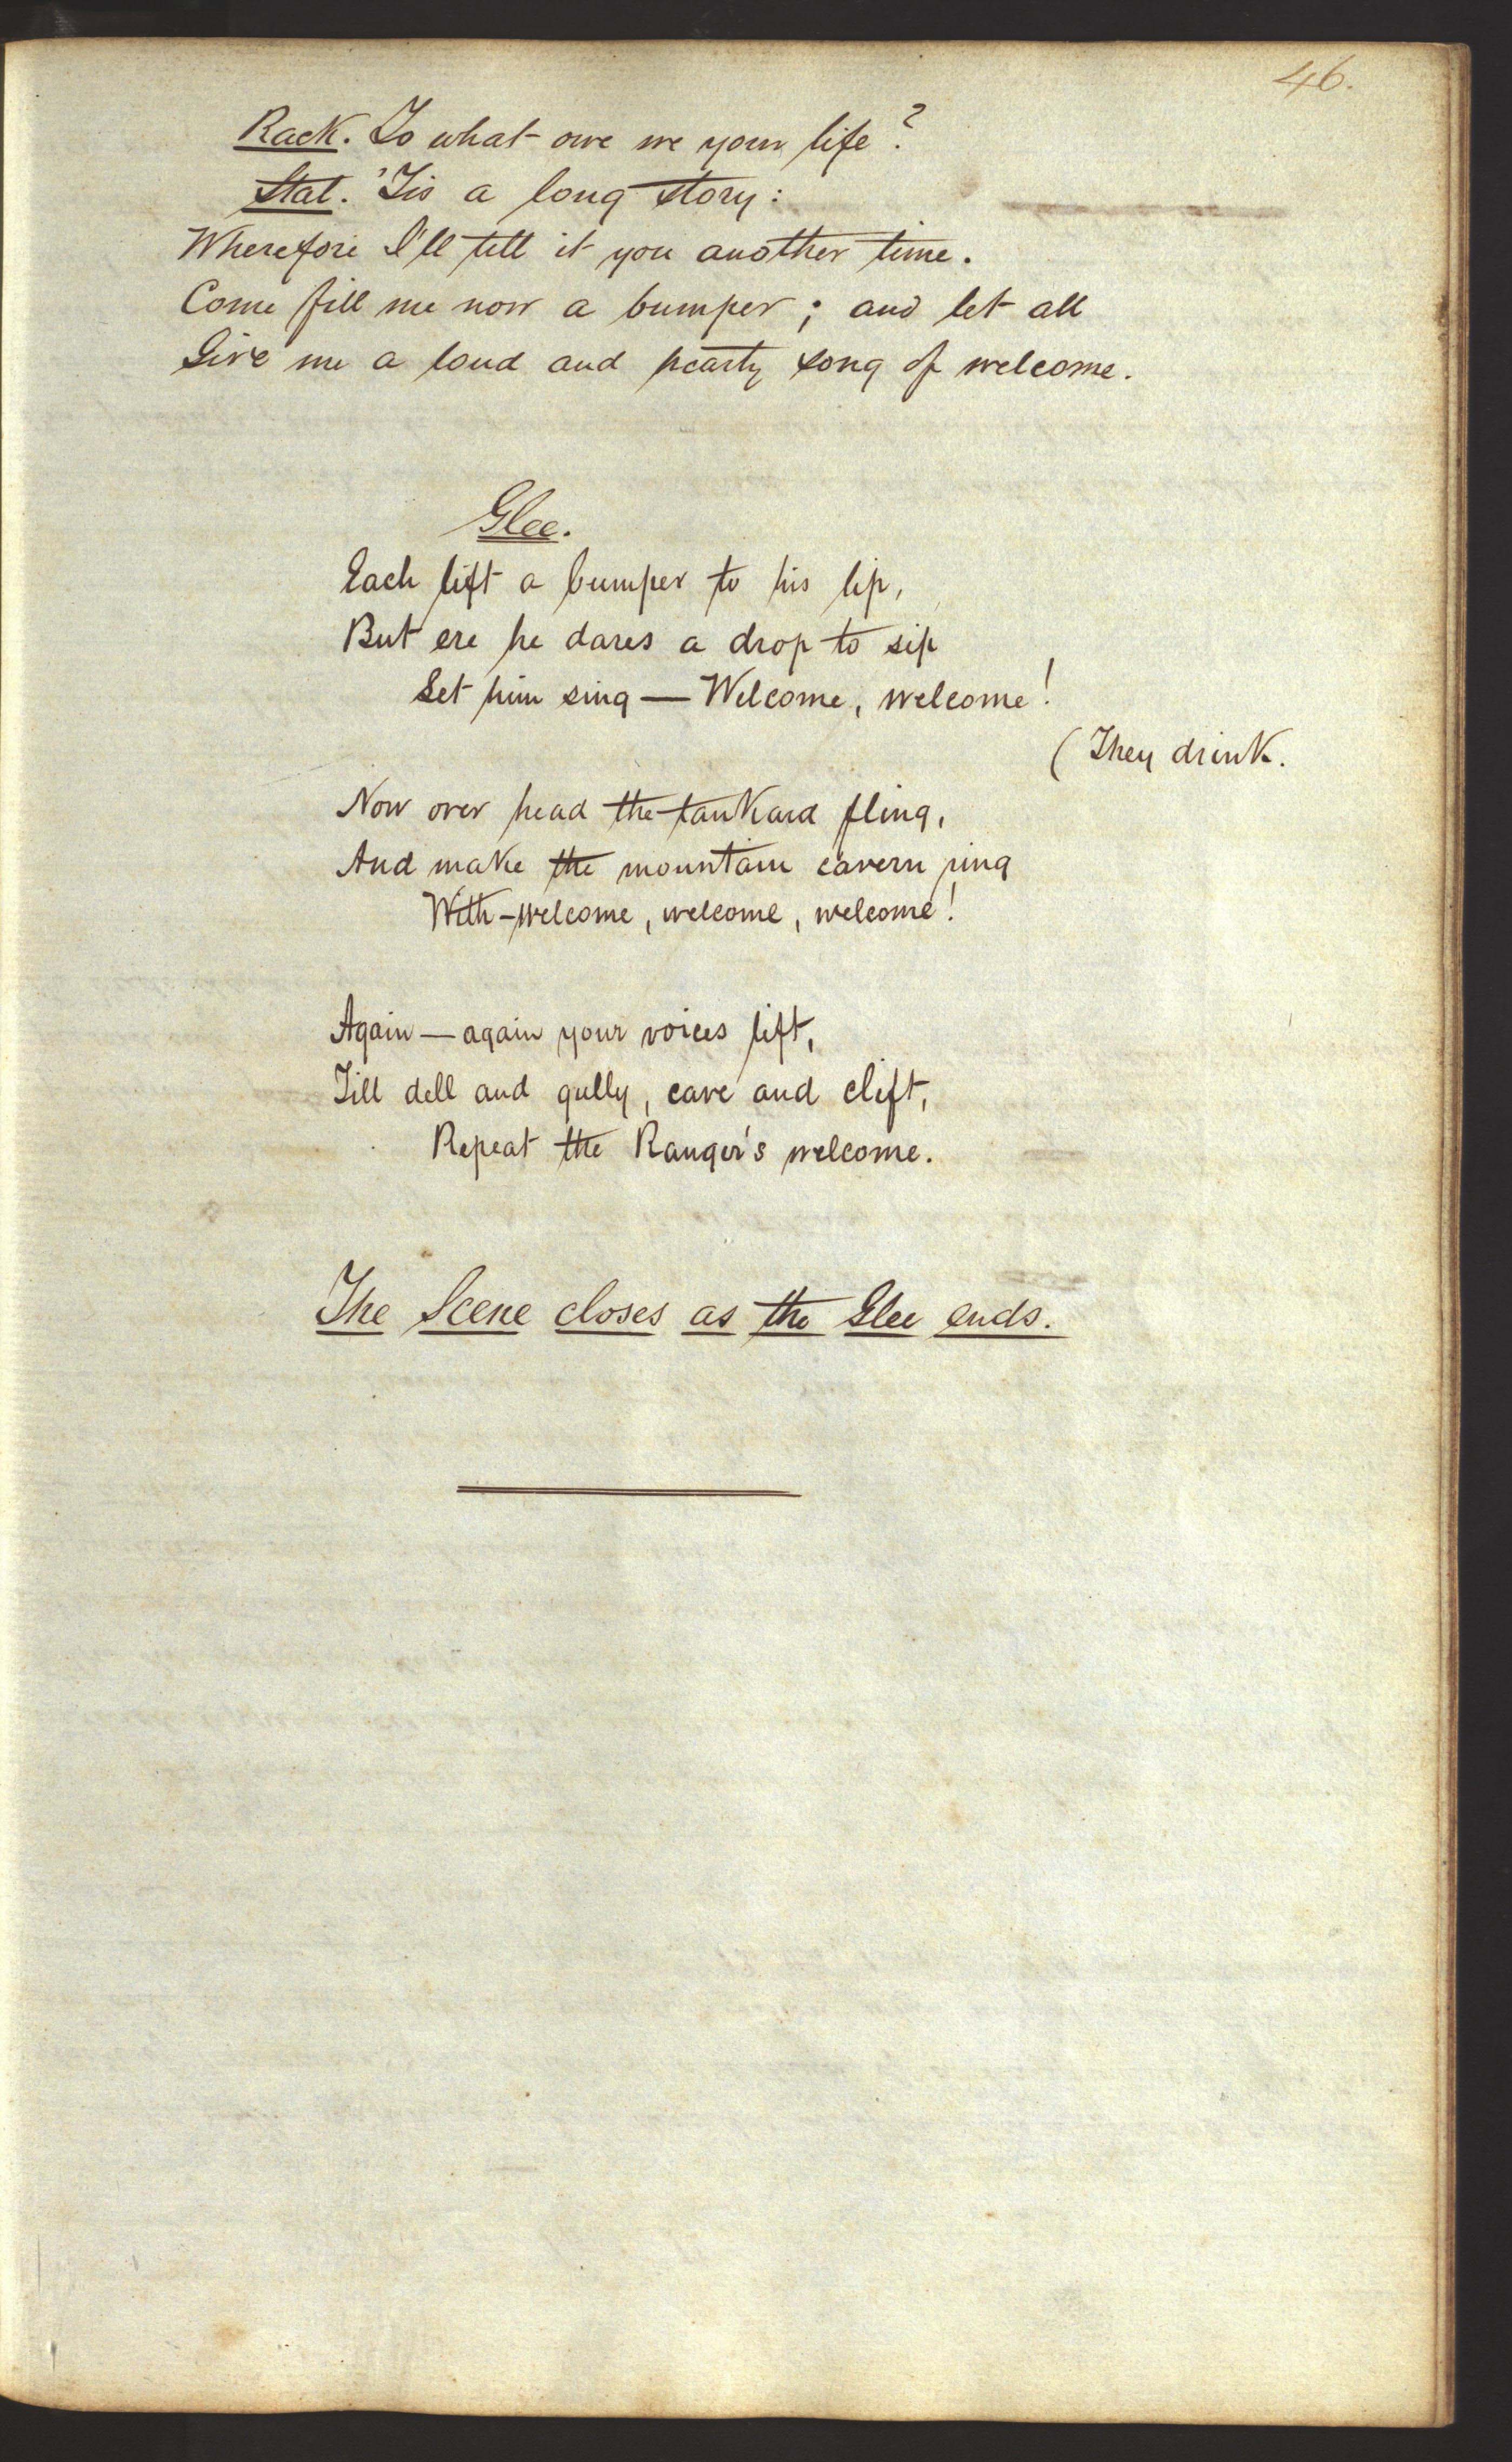 46.
Rack. To what owe we your life?
Stal. 'Tis a long story:
Wherefore I'll tell it you another time.
Come fill me now a bumper; and let all
Give me a loud and hearty song of welcome.
Glee.
Each lift a bumper to his lip,
But ere he dares a drop to sip
Let him sing — Welcome, welcome!
(They drink.
Now over head the tankard fling,
And make the mountain cavern ring
With — welcome, welcome, welcome!
Again — again your voices lift,
Till dell and gully, cave and clift,
Repeat the Ranger's welcome.
The Scene closes as the Glee ends.